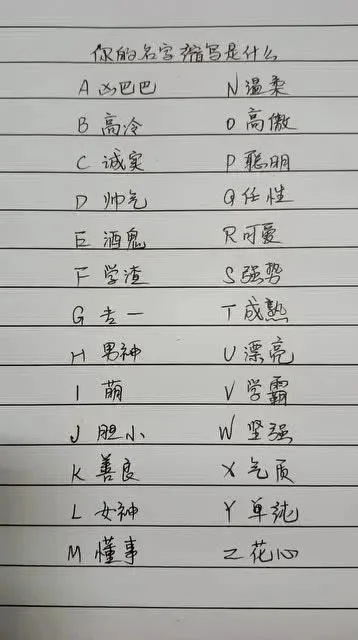 你的名字缩写是什么
A 凶巴巴 N 温柔
B 高冷 O 高傲
C 诚实 P 聪明
D 帅气 Q 任性
E 酒鬼 R 可爱
F 学渣 S 强势
G 专一 T 成熟
H 男神 U 漂亮
I 萌 V 学霸
J 胆小 W 坚强
K 善良 X 气质
L 女神 Y 单纯
M 懂事 Z 花心